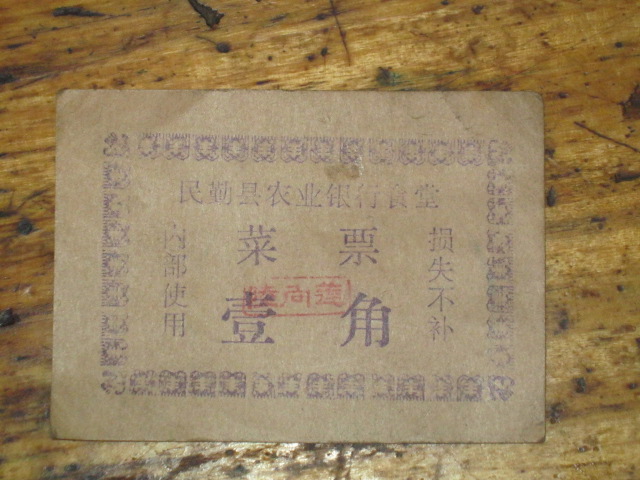 民勤县农业银行食堂
菜票
壹角
内部使用
损失不补